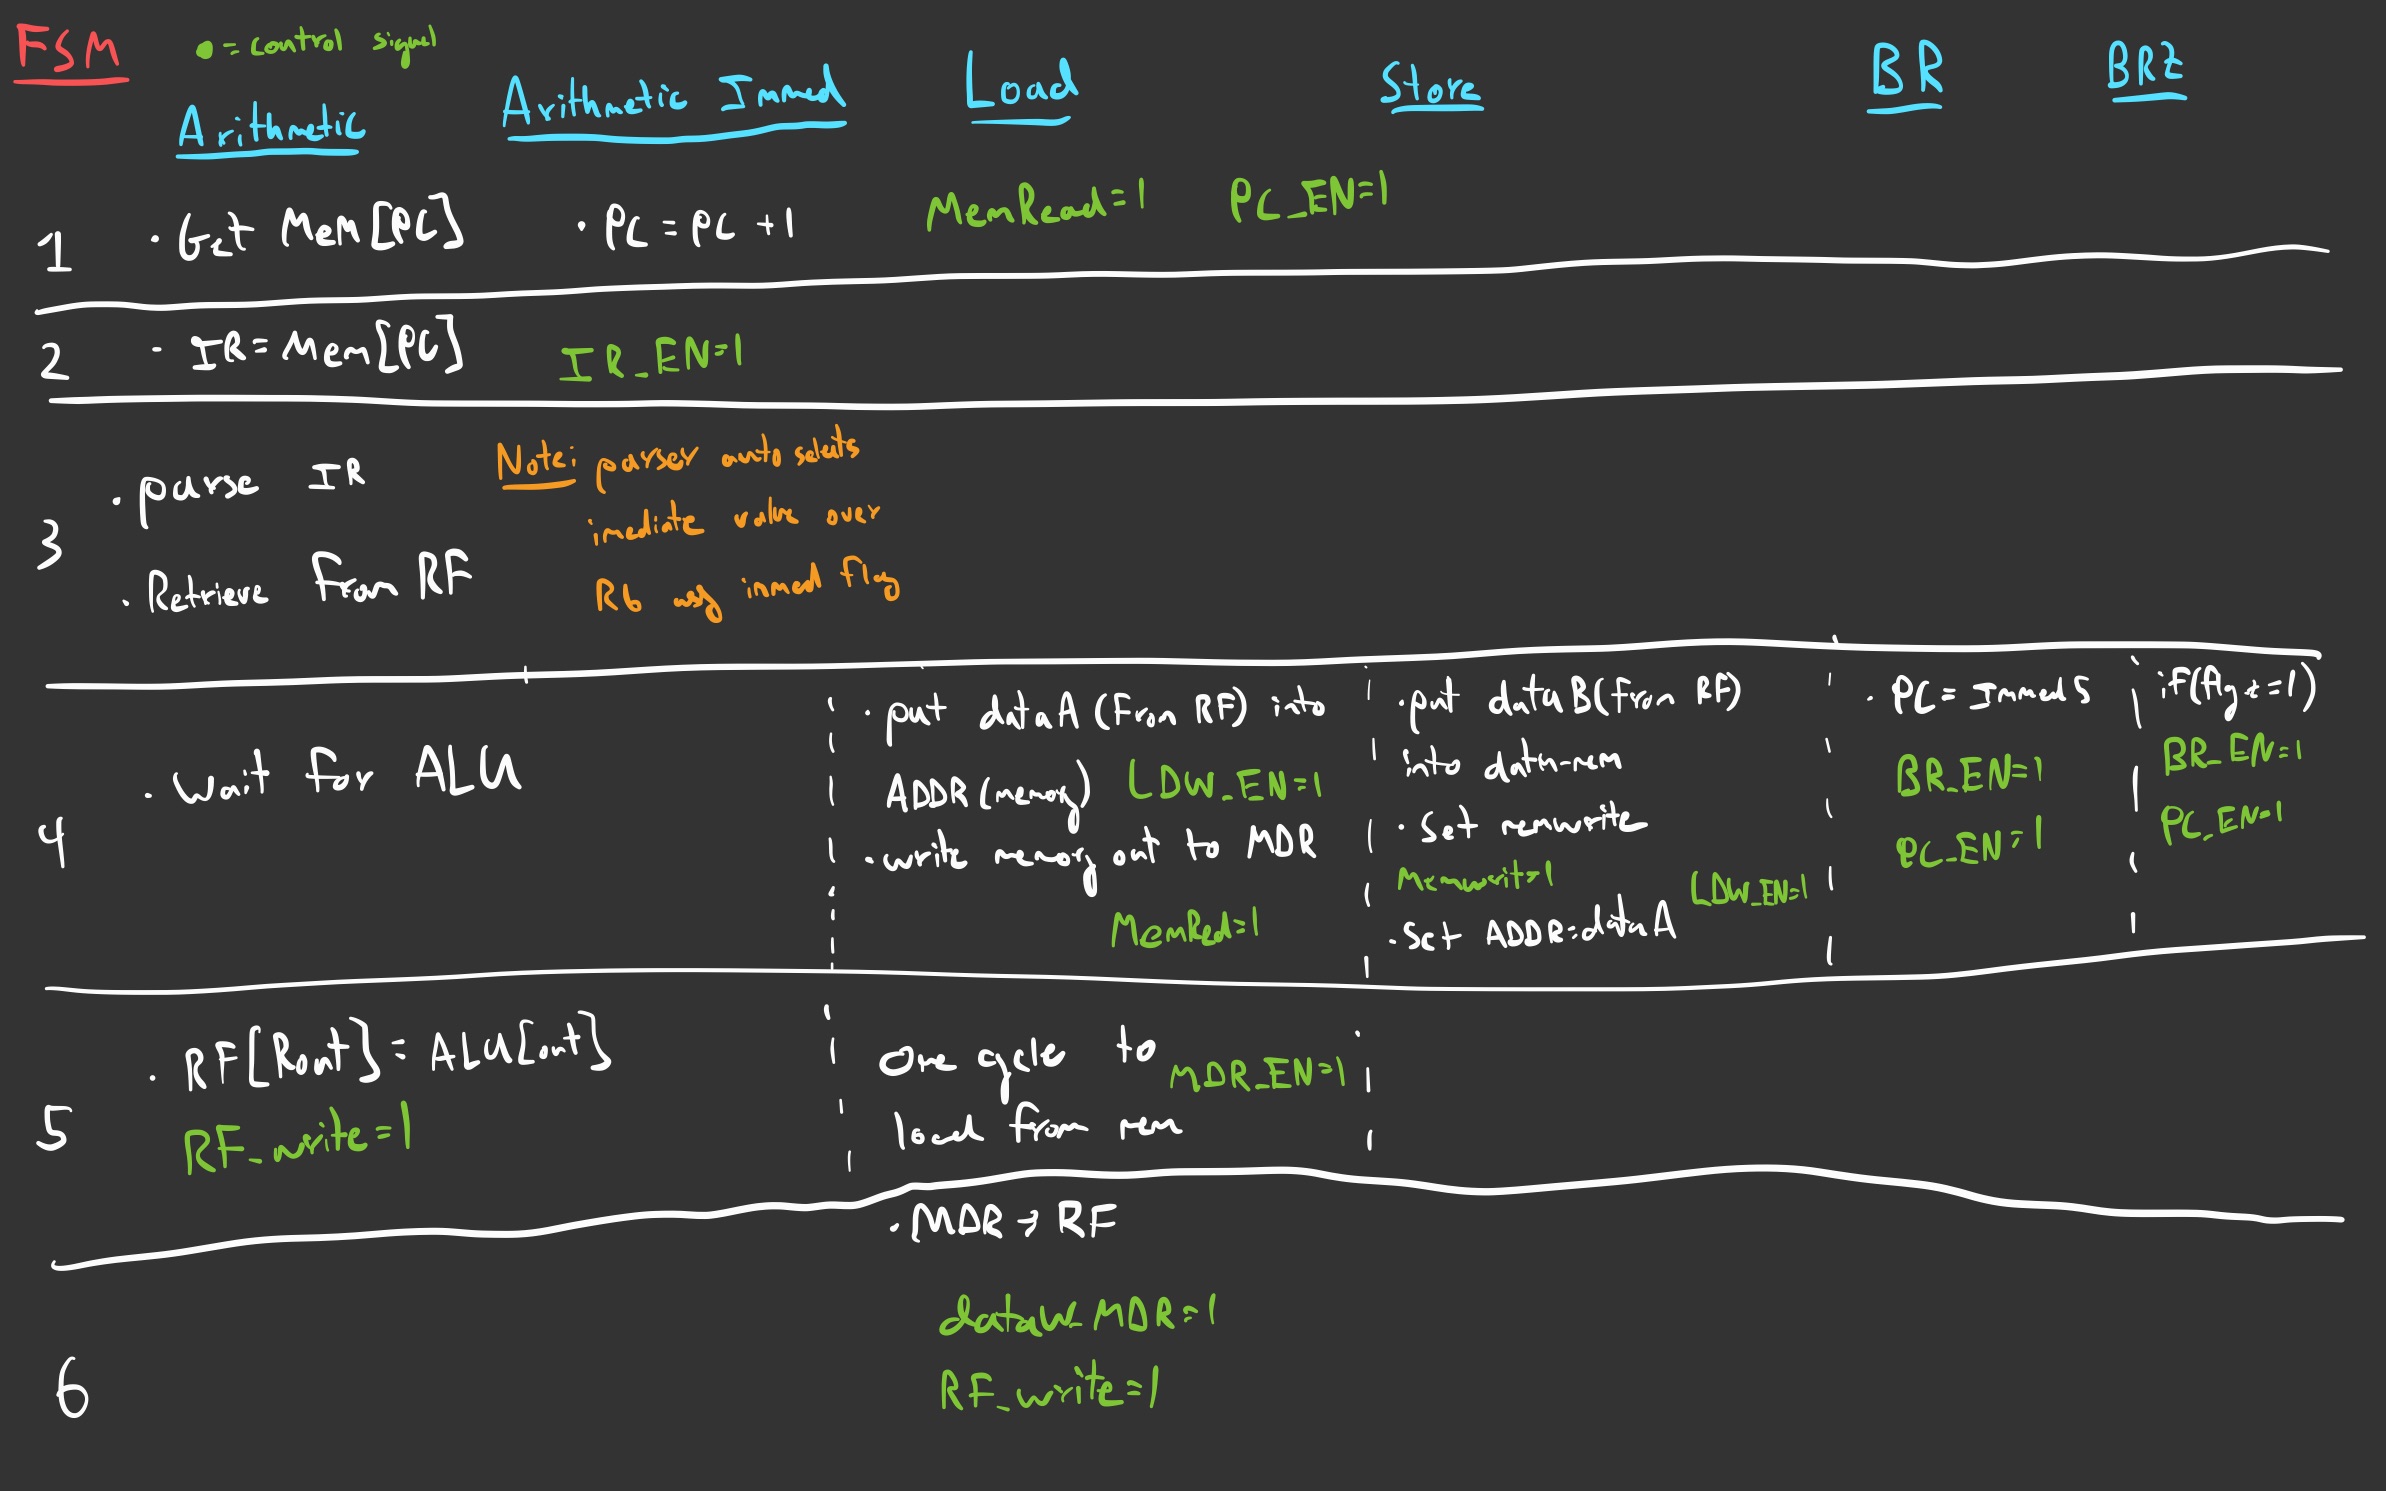 FSM
● = control signal
Arithmetic
Arithmetic Immed
Load
Store
BR
BRZ
1
· Get Mem[PC]
· PC = PC + 1
MemRead=1
PC_EN=1
2
- IR=Mem[PC]
IR_EN=1
3
· parse IR
· Retrieve from RF
Note: parser auto selects
imediate value over
Rb using immed flag
4
· Wait for ALU
· put dataA (From RF) into
ADDR (memory)
LDW_EN=1
· write memory out to MDR
MemRead=1
· put dataB (from RF)
into data-mem
· Set memwrite
Memwrite=1
LDW_EN=1
· Set ADDR=dataA
· PC = Immed5
BR_EN=1
PC_EN=1
if(flgz=1)
BR_EN=1
PC_EN=1
5
· RF[Rout] = ALU[out]
RF_write=1
one cycle to
MDR_EN=1
load from mem
6
· MDR → RF
dataW_MDR=1
RF_write=1